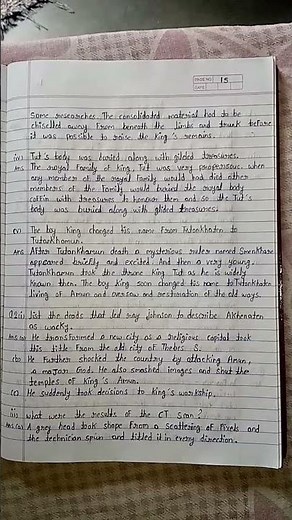 PAGE NO. 15
DATE
Some researches. The consolidated material had to be
chiselled away from beneath the limbs and trunk before
it was possible to raise the king's remains.
iv) Tut's body was buried along with gilded treasures.
Ans The royal family of king, Tut was very properious. when
any member of the royal family would had died other
members of the family would buried the royal body
coffin with treasures to honour them and so the Tut's
body was buried along with gilded treasures.
(v) The boy king changed his name from Tutankhaten to
Tutankhamun.
Ans After Tutankhamun death a mysterious ruler named Smenkhare
appeared briefly and exited. And then a very young
Tutankhamun took the throne king Tut as he is widely
known then. The boy king soon changed his name to Tutankhaten
living of Amun and oversaw and restoration of the old ways.
Q2.i) List the deeds that led ray Johnson to describe Akhenaten
as wacky.
Ans (a) He transformed a new city as a religious capital took
this title from the old city of Thebes S.
(b) He further shocked the country by attacking Aman,
a major God. He also smashed images and shut the
temples of king's Amun.
(c) He suddenly took decisions to king's workship.
ii) what were the results of the CT Scan?
Ans (a) A grey head took shape from a scattering of Pixels and
the technician spun and titled it in every direction.